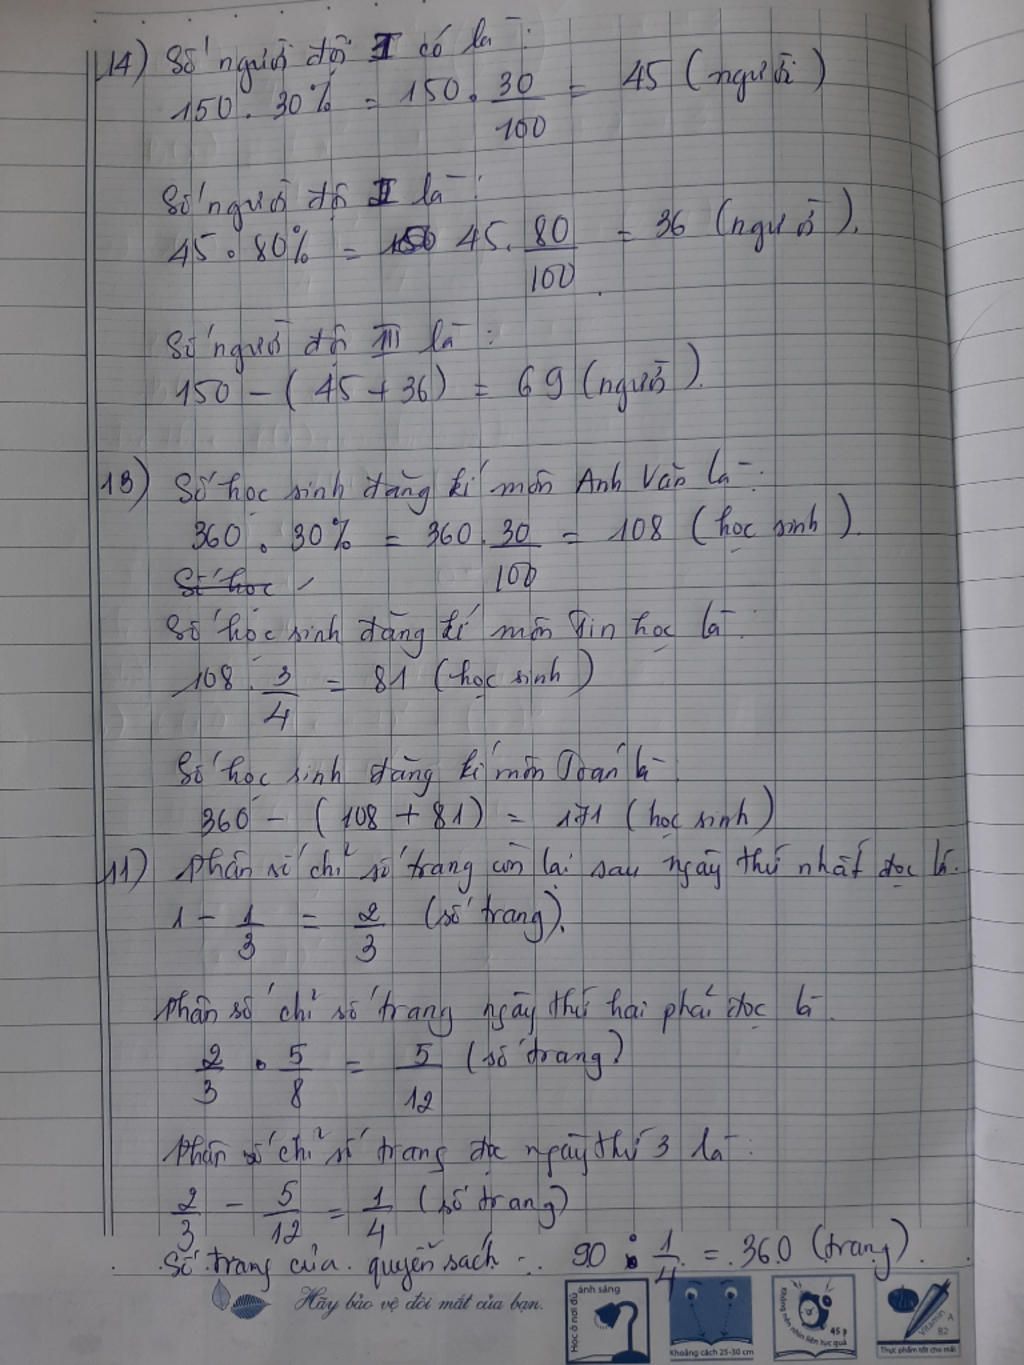 14) Số người đội I có là:
150 . 30% = 150 . 30/100 = 45 (người)
Số người đội II là:
45 . 80% = 45 . 80/100 = 36 (người).
Số người đội III là:
150 - (45 + 36) = 69 (người).
13) Số học sinh đăng kí môn Anh Văn là:
360 . 30% = 360 . 30/100 = 108 (học sinh).
Số học
Số học sinh đăng kí môn Tin học là:
108 . 3/4 = 81 (học sinh)
Số học sinh đăng kí môn Toán là
360 - (108 + 81) = 171 (học sinh)
11) Phân số chỉ số trang còn lại sau ngày thứ nhất đọc là.
1 - 1/3 = 2/3 (số trang).
Phân số chỉ số trang ngày thứ hai phải đọc là.
2/3 . 5/8 = 5/12 (số trang)
Phân số chỉ số trang đọc ngày thứ 3 là:
2/3 - 5/12 = 1/4 (số trang)
Số trang của quyển sách: 90 : 1/4 = 360 (trang).
Hãy bảo vệ đôi mắt của bạn.
Học ở nơi đủ ánh sáng
Khoảng cách 25-30 cm
Không nên nhìn liên tục quá 45 p
Vitamin A B2
Thực phẩm tốt cho mắt